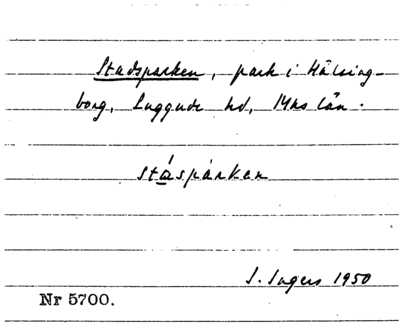 Stadsparken, park i Hälsing-
borg, Luggude hd, Mhs län.
stáspárkan
S. Ingers 1950
Nr 5700.